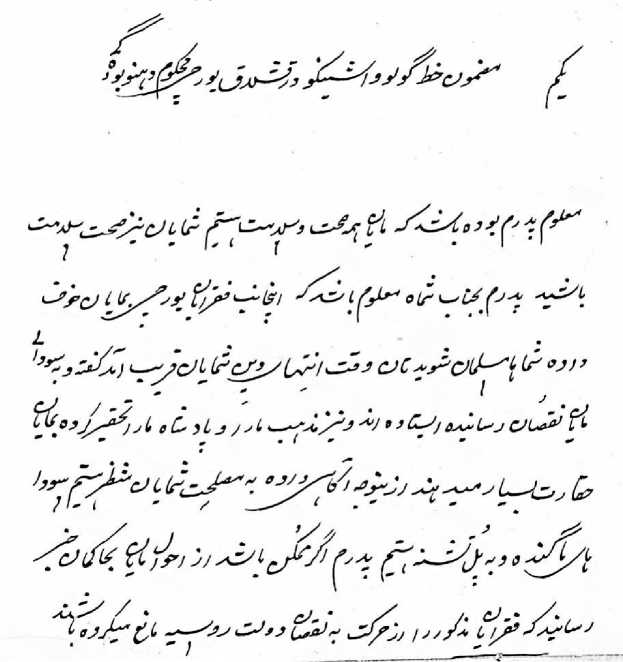 یکم مضمون خط گولوواشینکو در قشلاق یورچی محکوم دهنو بوده‌گی
معلوم پدرم بوده باشد که مایان همه صحت و سلامت هستیم شمایان نیز صحت سلامت
باشید پدرم بجناب شماه معلوم باشد که اینجانب فقرایان یورچی بمایان خوف
داده شماها مسلمان شویدتان وقت انتهای دین شمایان قریب آمد گفته و به سودای
مایان نقصان رسانیده ایستاده اند و نیز مذهب ما را و پادشاه ما را تحقیر کرده بمایان
حقارت بسیار میدهند از ینوجه آگاهی داده به مصلحت شمایان منتظر هستیم سودا
های ما گنده و به پُل تشنه هستیم پدرم اگر ممکن باشد از احوال مایان بحاکمان خبر
رسانید که فقرایان مذکور را از حرکت به نقصان دولت روسیه مانع میکرده باشند